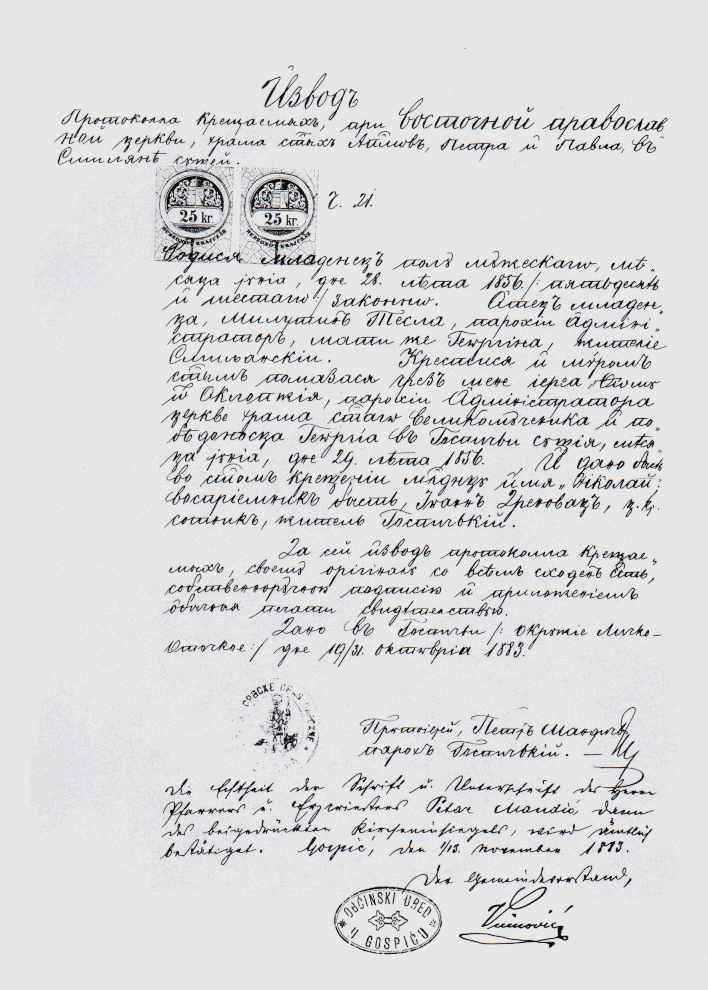 Изводъ
Протоколла крещаемыхъ, при восточной православ
ной церкви, храма стыхъ Апловъ, Петра и Павла, въ
Смилянѣ сущей.
25 kr. 25 kr.
Ч. 21.
Родися младенецъ полꙋ мꙋжескагѡ, мѣ-
сяца іꙋніа, дне 28. лѣта 1856 /: пятьдесять
и шестагѡ :/ законнѡ. Отецъ младен-
ца, Милꙋтинъ Тесла, парохіи Адміні-
страторъ, мати же Геѡргіна, жителіе
Смилянскіи. Крестися и мѵромъ
стымъ помазася чрезъ мене іереа Ѳѡмы
Оклопжія, парохіи Адміністратора
церкве храма стагѡ Великомꙋченика и по-
бѣдоносца Геѡргіа въ Госпичьи сꙋщія, мѣся
ца іꙋніа, дне 29. лѣта 1856. И дано бысть
во стомъ крещеніи мꙋ имя „Николай:
воспріемникъ бысть, Іѡаннъ Дреновацъ, ц. к.
сотникъ, житель Госпичкій.
За сей изводъ протоколла крещае-
мыхъ, своемꙋ орігіналꙋ со всѣмъ сходенъ есть,
собственнорꙋчною подписію и приложеніемъ
обычныя печати свидѣтелствꙋю.
Дано въ Госпичьи /: окрꙋжіе Личко-
Оточкое :/ дне 19/31. октовріа 1883.
СРБСКЕ ПРАВ
Протоіерей, Петръ Мандичъ,
парохъ Госпичкій.
Die Echtheit der Schrift u. Unterschrift des Herrn
Pfarrers u. Erzpriesters Petar Mandić dann
des beigedrückten Kirchensiegels, wird ämtlich
bestätiget. Gospić, den 1/13. November 1883.
Der Gemeindevorstand,
OBĆINSKI URED
U GOSPIĆU